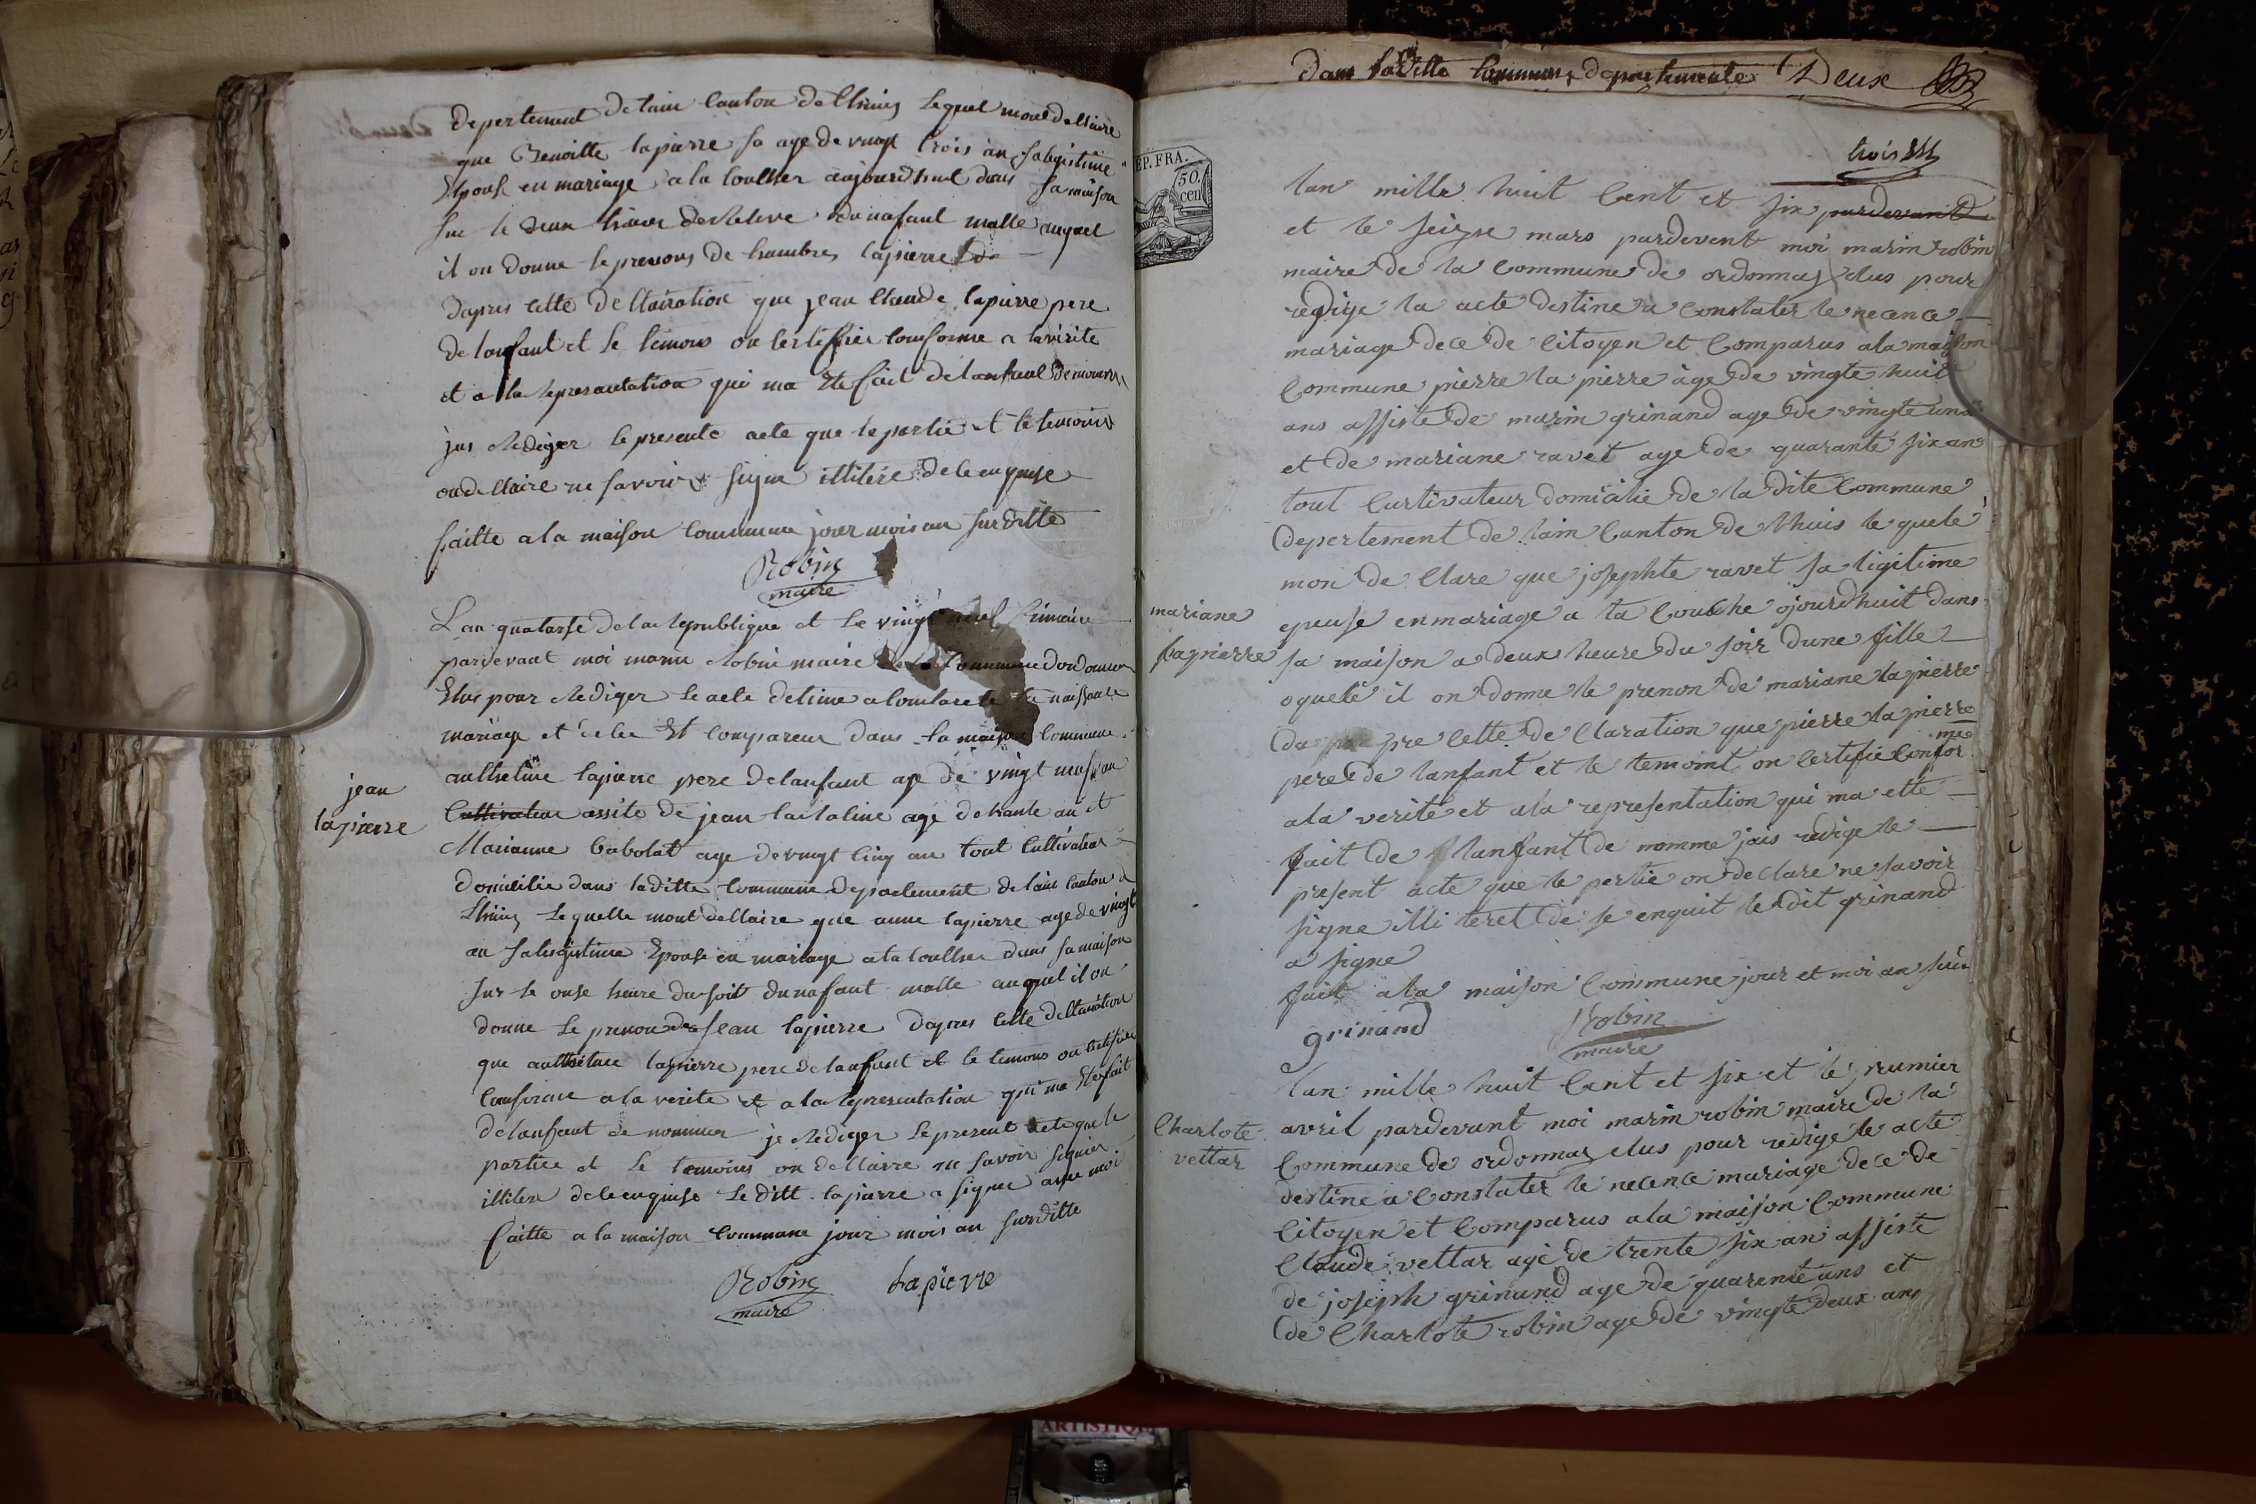 departement de lain canton de lhuis lequel mont de claire
que Benoitte lapierre sa age de vingt trois an sa legistime
Epouse en mariage a la coucher aujourdhuit dans sa maison
sur le deux heure de Relevé dun nafant malle auquel
il on donne le prenons de lapierre
dapres cette declairation que jean claude lapierre pere
de lanfant et le temons on certiffier comforme a la virite
et a la represantation qui ma Ete fait de lanfant
jus Rediger le presente acte que le partie et le temoins
on declaire ne savoir signe illitere de ce enquise
faitte a la maison commune jour mois an sur ditte
Robin
maire
jean
lapierre
L an quatorse de la republique et le vingt neuf frimaire
pardevant moi marin Robin maire de la Commune dordonna
Elus pour Rediger le acte detine a constate la naissance
mariage et deces Et compareu dans la maison commune
anthelme lapierre pere de lanfant age de vingt neuf an
Cultivateur assite de jean age de trante an et
Marianne babolat age de vingt cinq an tout cultivateur
domicilie dans laditte commune departement de lain canton d
Lhuis Lequelle mont declaire que anne lapierre age de vingt
an sa legistime Epouse en mariage a la coucher dans sa maison
sur le onse heure du soit dun nafant malle auquel il on
donne le prenon de Jean lapierre dapres cette declaration
que anthelme lapierre pere de lanfant et le temons on certifier
comforme a la verite et a la representation qui ma Ete fait
de lanfant de nommer je Rediger le present acte que le
partie et le temoins on declairre ne savoir signier
illitere de ce enquise le ditt lapierre a signe avec moi
faitte a la maison commune jour mois an surditte
Robin lapierre
maire
dans laditte commune departemente Deux
trois
EP. FRA.
50.
cen
lan mille huit cent et six pardevant
et le seizse mars pardevent moi marin robin
maire de la commune de ordonnas elus pour
redige la acte destine a constater le necence
mariage dece de citoyen et comparus a la maison
commune pierre la pierre âge de vingte huit
ans assiste de marin grinand age de vingte
et de mariane ravet age de quarante six an
tout curtivateur domicilie de la dite commune
depertement de lain canton de lhuis le quele
mon de clare que josephte ravet sa ligitime
mariane
lapierre
epeuse en mariage a la couche ojourdhuit dans
sa maison a deux heure du soir dune fille
oquelé il on donne le prenon de mariane la pierre
da pre cette de claration que pierre la pierre
pere de lanfant et le temoint on certifie confor
me
a la verite et a la representation qui ma ette
fait de lanfant de nomme jais redige le
present acte que le pertie on de clare ne savoir
signe illi teret de se enquit le dit grinand
a signe
fait a la maison commune jour et moi an sus
grinand
Robin
maire
Charlote
vettar
lan mille huit cent et six et le preumier
avril pardevant moi marin robin maire de la
commune de ordonnas elus pour redige le acte
destine a constater le necence mariage dece de
citoyen et comparus a la maison commune
Claude vettar age de trente six an assiste
de joseph grinand age de quarente ans et
de Charlote robin age de vingte deux ans